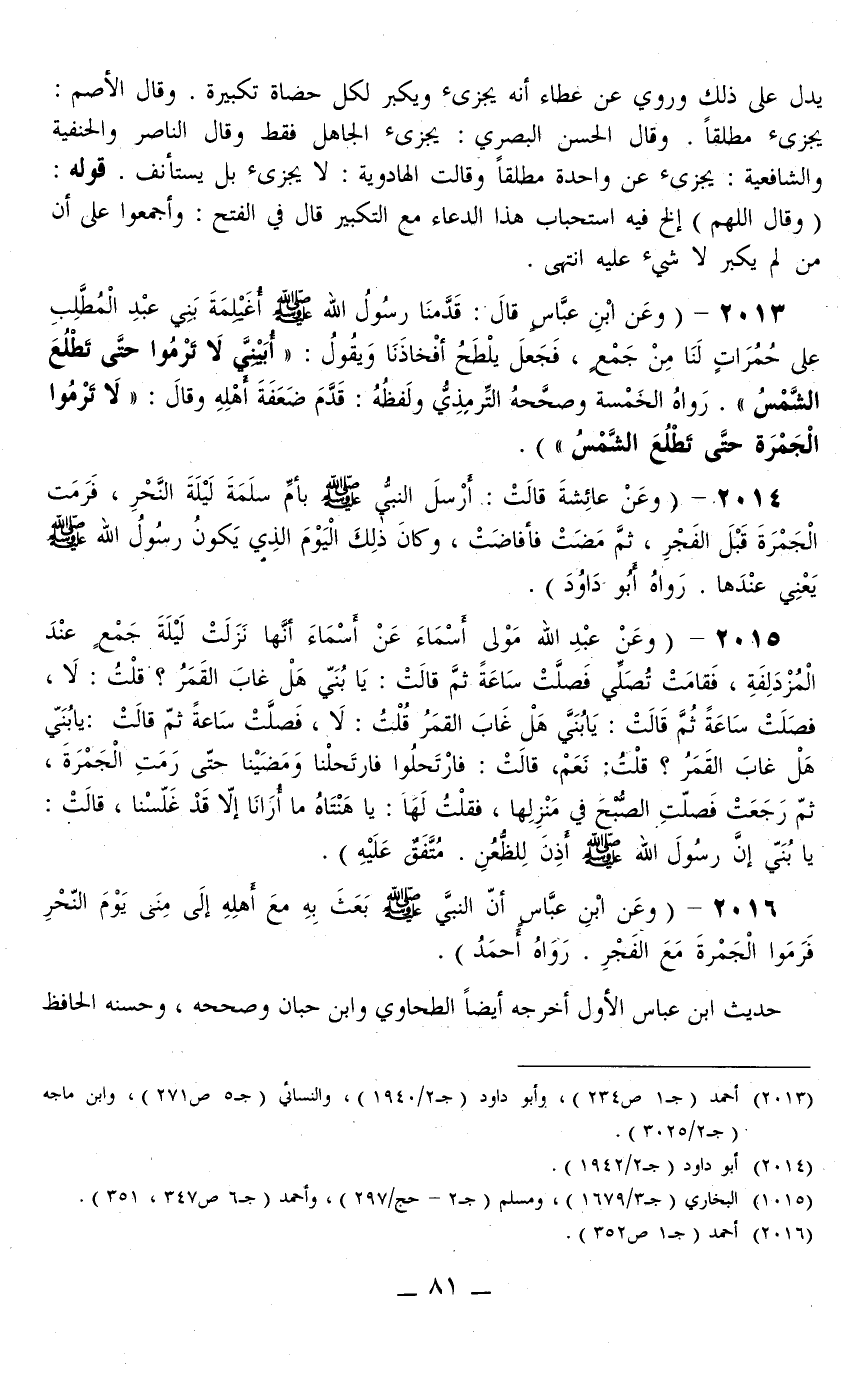 يدل على ذلك وروي عن عطاء أنه يجزىء ويكبر لكل حضاة تكبيرة . وقال الأصم :
يجزىء مطلقاً . وقال الحسن البصري : يجزىء الجاهل فقط وقال الناصر والحنفية
والشافعية : يجزىء عن واحدة مطلقاً وقالت الهادوية : لا يجزىء بل يستأنف . قوله :
( وقال اللهم ) إلخ فيه استحباب هذا الدعاء مع التكبير قال في الفتح : وأجمعوا على أن
من لم يكبر لا شيء عليه انتهى .
٢٠١٣ – ( وعَن ابْنِ عبَّاسٍ قالَ : قَدَّمنَا رسولُ الله ﷺ أُغَيْلِمَةَ بَنِي عبْدِ الْمُطَّلِبِ
على حُمُرَاتٍ لَنَا مِنْ جَمْعٍ ، فَجَعلَ يلْطَحُ أفْخاذَنَا وَيقُولُ : « أُبَيْنِيَّ لَا تَرْمُوا حتَّى تَطْلُعَ
الشَّمْسُ » . رَواهُ الخَمْسة وصحَّحهُ التِّرمذِيُّ ولَفظُهُ : قَدَّمَ ضَعَفَةَ أَهْلِهِ وقالَ : « لَا تَرْمُوا
الْجَمْرَة حتَّى تَطْلُعَ الشَّمْسُ » ) .
٢٠١٤ – ( وعَنْ عائِشةَ قالَتْ : أَرْسلَ النبيُّ ﷺ بأمِّ سلَمَةَ لَيْلَةَ النَّحْرِ ، فَرَمَت
الْجَمْرَةَ قَبْلَ الفَجْرِ ، ثمَّ مَضَتْ فأفاضَتْ ، وكانَ ذٰلِكَ الْيَوْمَ الذِي يَكونُ رسولُ الله ﷺ
يَعْنِي عنْدَها . رَواهُ أَبُو دَاوُدَ ) .
٢٠١٥ – ( وعَنْ عبْدِ الله مَوْلى أَسْمَاءَ عَنْ أَسْمَاءَ أنَّها نَزَلَتْ لَيْلَةَ جَمْعٍ عنْدَ
الْمُزْدَلِفَةِ ، فَقامَتْ تُصَلِّي فَصلَّتْ ساعَةً ثمَّ قالَتْ : يَا بُنَيّ هَلْ غابَ القَمَرُ ؟ قلْتُ : لَا ،
فصَلَتْ ساعَةً ثُمَّ قَالَتْ : يَابُنَيَّ هَلْ غَابَ القمَرُ قُلْتُ : لَا ، فَصلَّتْ ساعةً ثمّ قالَتْ :يابُنَيّ
هَلْ غابَ القَمَرُ ؟ قلْتُ: نَعَمْ، قالَتْ : فارْتَحلُوا فارتَحلْنا وَمَضَيْنا حتّى رَمَتِ الْجَمْرَةَ ،
ثمّ رَجَعَتْ فَصلّتِ الصُّبْحَ في مَنْزِلِها ، فقلْتُ لَهَا : يا هَنْتَاهُ ما أُرَانَا إلّا قَدْ غَلّسْنا ، قالَتْ :
يا بُنَيّ إنَّ رسولَ الله ﷺ أَذِنَ لِلظُّعُنِ . مُتَّفَقٌ عَلَيْهِ ) .
٢٠١٦ – ( وعَن ابْنِ عبَّاسٍ أنّ النبيَّ ﷺ بَعَثَ بِهِ معَ أَهلِهِ إلَى مِنَى يَوْمَ النّحْرِ
فَرَمَوا الْجَمْرةَ مَعَ الفَجْرِ . رَوَاهُ أَحمَدُ ) .
حديث ابن عباس الأول أخرجه أيضاً الطحاوي وابن حبان وصححه ، وحسنه الحافظ
(٢٠١٣) أحمد ( جـ١ ص٢٣٤ ) ، وأبو داود ( جـ١٩٤٠/٢ ) ، والنسائي ( جـ٥ ص٢٧١ ) ، وابن ماجه
( جـ٣٠٢٥/٢ ) .
(٢٠١٤) أبو داود ( جـ١٩٤٢/٢ ) .
(١٠١٥) البخاري ( جـ١٦٧٩/٣ ) ، ومسلم ( جـ٢ – حج/٢٩٧ ) ، وأحمد ( جـ٦ ص٣٤٧ ، ٣٥١ ) .
(٢٠١٦) أحمد ( جـ١ ص٣٥٢ ) .
– ٨١ –